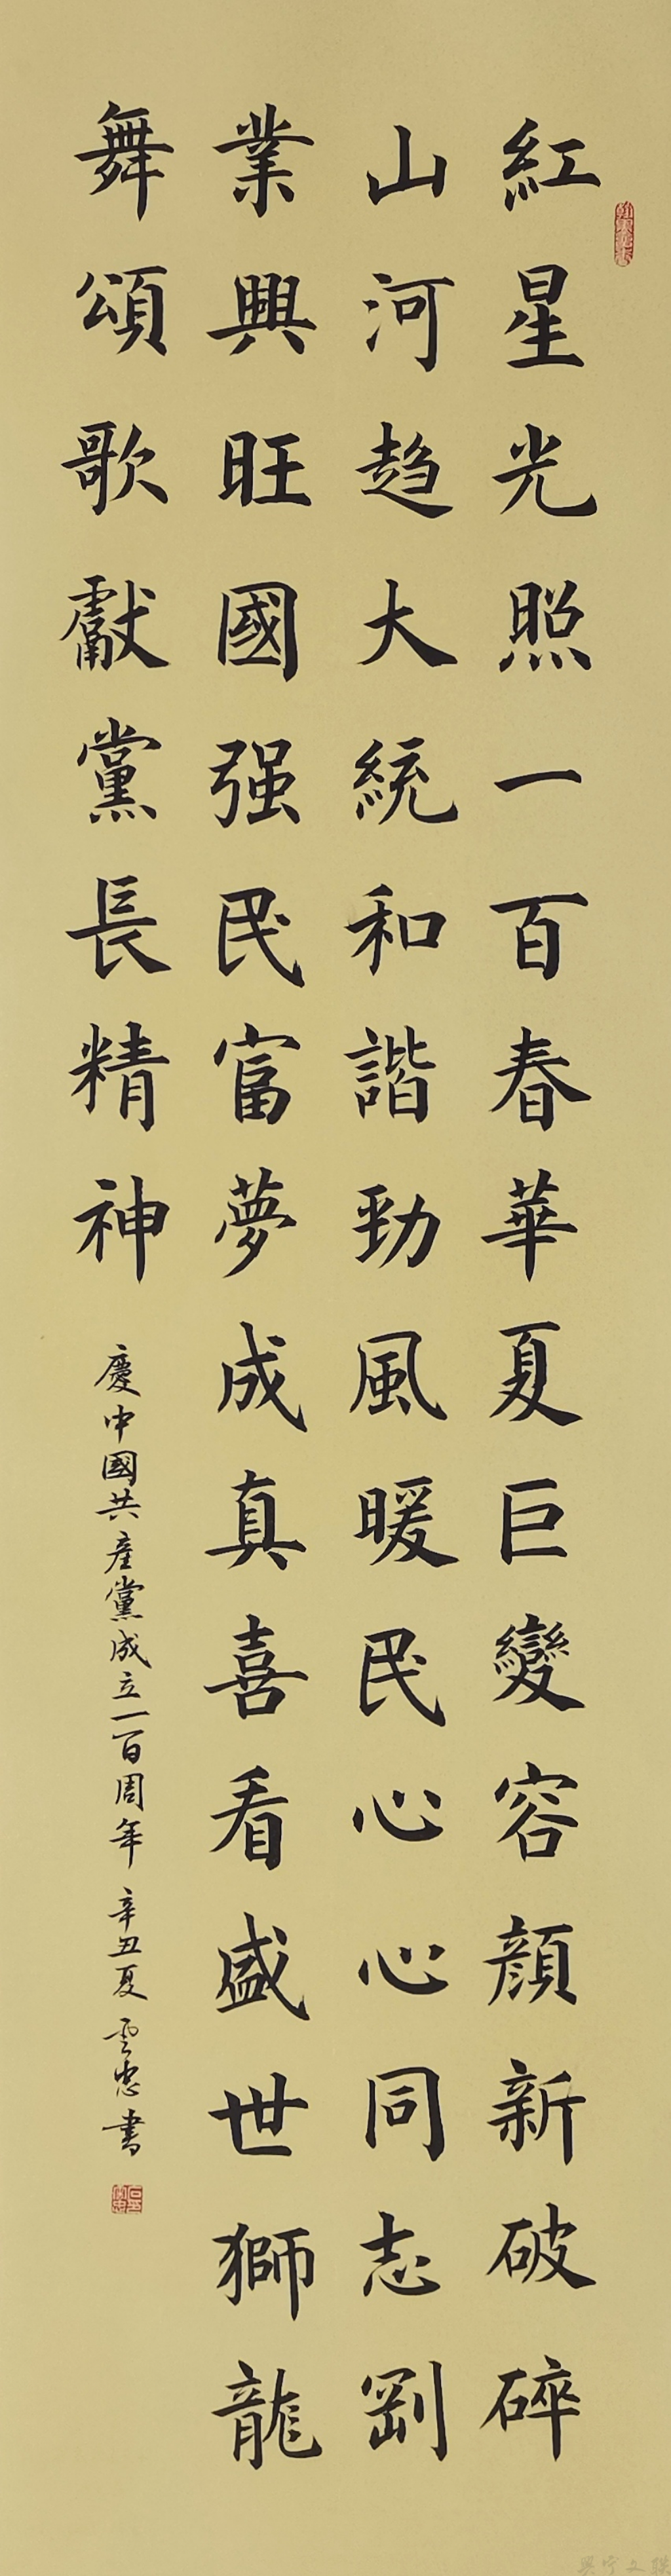 紅星光照一百春華夏巨變容顔新破碎
山河趋大統和諧勁風暖民心心同志剛
業興旺國强民富夢成真喜看盛世獅龍
舞頌歌獻黨長精神
慶中國共産黨成立一百周年 辛丑夏 雲忠書